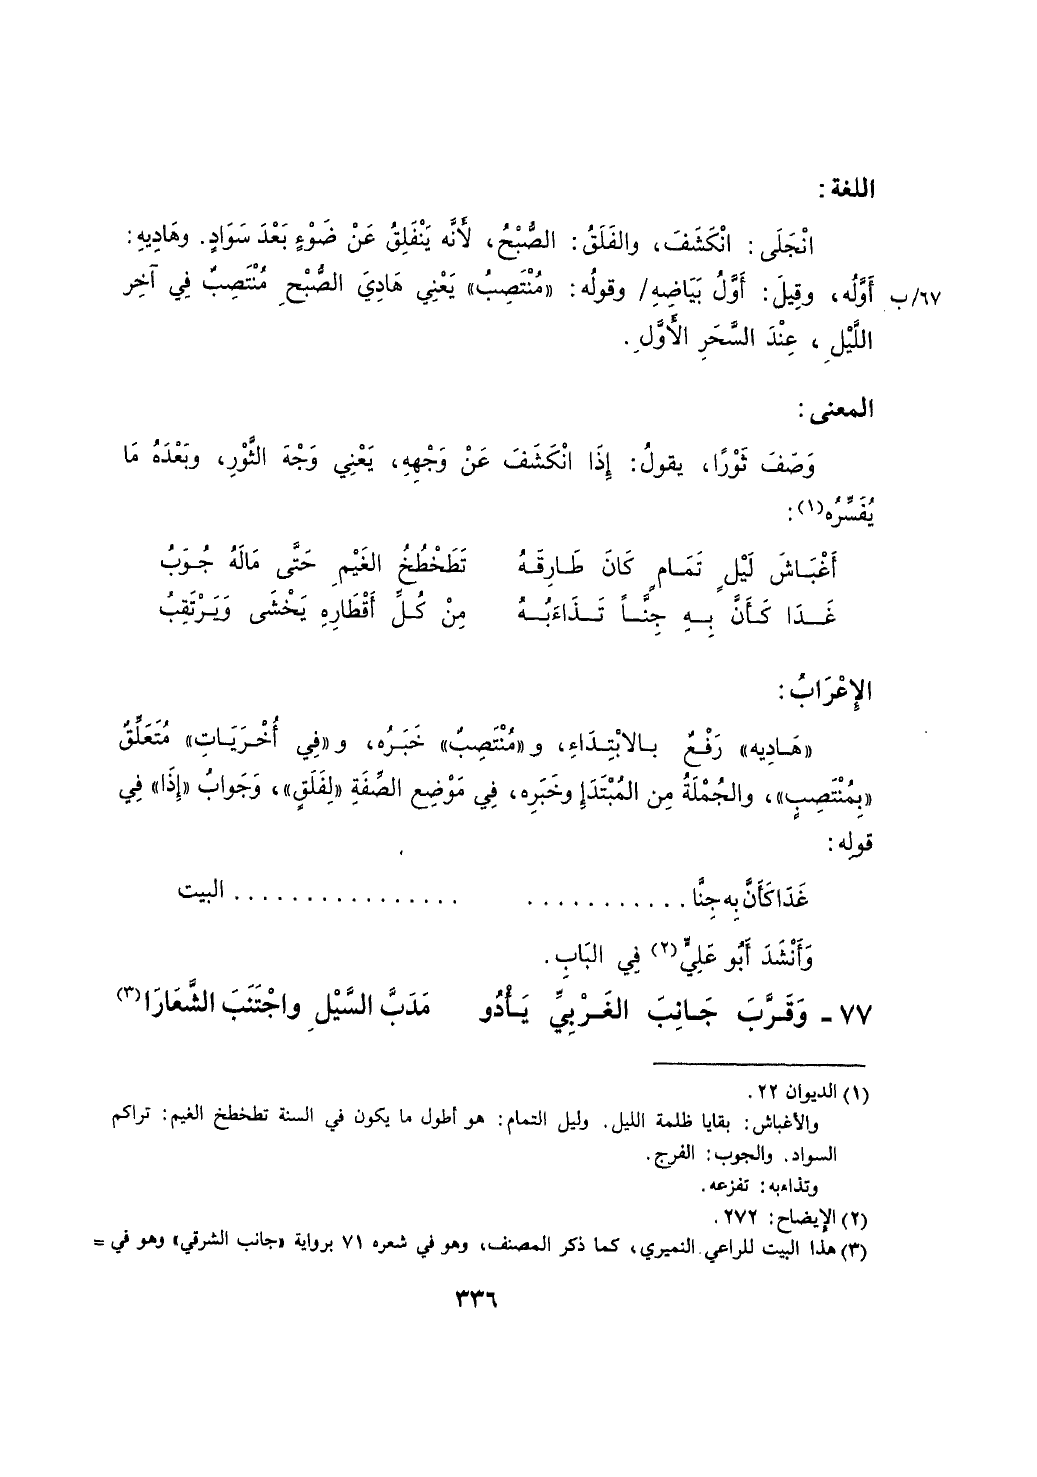 اللغة :
انْجَلَى : انْكَشَفَ، والفَلَقُ : الصُّبْحُ، لأَنَّه يَنْفَلِقُ عَنْ ضَوْءٍ بَعْدَ سَوَادٍ. وهَادِيهِ :
٦٧/ب أَوَّلُه، وقِيلَ : أَوَّلُ بَيَاضِهِ/ وقولُه : «مُنْتَصِبُ» يَعْنِي هَادِيَ الصُّبْحِ مُنْتَصِبٌ فِي آخِرِ
اللَّيْلِ ، عِنْدَ السَّحَرِ الأَوَّلِ.
المعنى :
وَصَفَ ثَوْرًا، يقولُ : إِذَا انْكَشَفَ عَنْ وَجْهِهِ، يَعْنِي وَجْهَ الثَّوْرِ، وبَعْدَهُ مَا
يُفَسِّرُه(١) :
أَغْبَاشَ لَيْلٍ تَمَامٍ كَانَ طَارِقَهُ تَطَخْطُخُ الغَيْمِ حَتَّى مَالَهُ جُوَبُ
غَدَا كَأَنَّ بِهِ جِنًّا تَذَاءَبُهُ مِنْ كُلِّ أَقْطَارِهِ يَخْشَى وَيَرْتَقِبُ
الإِعْرَابُ :
«هَادِيه» رَفْعٌ بالابْتِدَاءِ، و«مُنْتَصِبٌ» خَبَرُه، و«فِي أُخْرَيَاتِ» مُتَعَلِّقٌ
«بِمُنْتَصِبٍ»، والجُمْلَةُ مِن المُبْتَدَإِ وخَبَرِه، فِي مَوْضِع الصِّفَةِ «لِفَلَقٍ»، وَجَوابُ «إِذَا» فِي
قولِه :
غَدَا كَأَنَّ بِه جِنًّا . . . . . . . . . . . . . . . . . . . . . . . . . . . البيت
وَأَنْشَدَ أَبُو عَلِيٍّ(٢) فِي البَابِ.
٧٧ ـ وَقَرَّبَ جَانِبَ الغَرْبِيِّ يَأْدُو مَدَبَّ السَّيْلِ واجْتَنَبَ الشَّعَارَا(٣)
(١) الديوان ٢٢ .
والأغباش : بقايا ظلمة الليل. وليل التمام : هو أطول ما يكون في السنة تطخطخ الغيم : تراكم
السواد. والجوب : الفرج.
وتذاءبه : تفزعه.
(٢) الإيضاح : ٢٧٢ .
(٣) هذا البيت للراعي النميري، كما ذكر المصنف، وهو في شعره ٧١ برواية «جانب الشرقي» وهو في =
٣٣٦